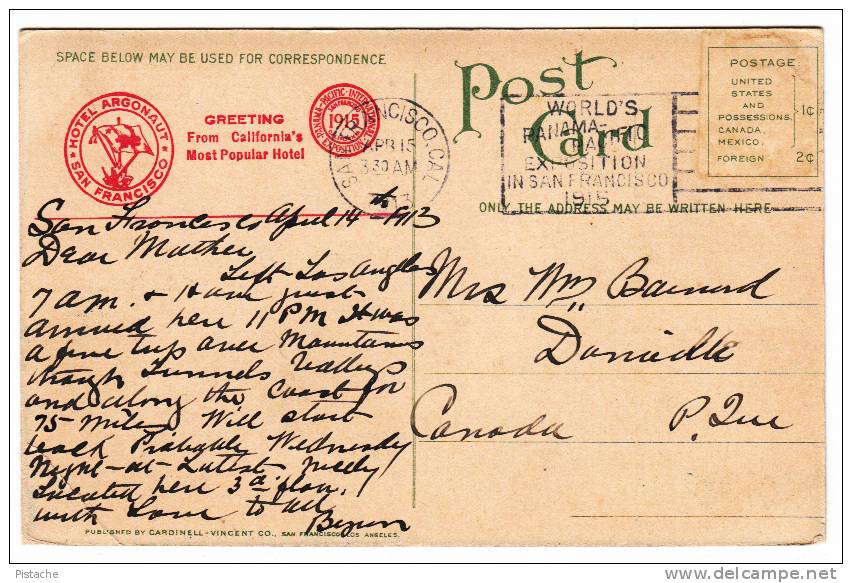 SPACE BELOW MAY BE USED FOR CORRESPONDENCE
Post
Card
HOTEL ARGONAUT
SAN FRANCISCO
GREETING
From California's
Most Popular Hotel
PANAMA-PACIFIC-INTERNATIONAL
SAN FRANCISCO
1915
EXPOSITION
SAN FRANCISCO, CAL
APR 15
3:30 AM
WORLD'S
PANAMA-
PACIFIC
EXPOSITION
IN SAN FRANCISCO
1915
POSTAGE
UNITED
STATES
AND
POSSESSIONS,
CANADA,
MEXICO.
1¢
FOREIGN 2¢
ONLY THE ADDRESS MAY BE WRITTEN HERE
San Francisco April 14th 1913
Dear Mother
Left Los Angles
7 am. & Have just
arrived here 11 PM It was
a fine trip over Mountains
through Tunnels Valleys
and along the Coast for
75 miles Will start
back Probable Wednesday
Night at Latest. nicely
Located here 3d floor.
with Love to all
Byron
Mrs Wm Barnard
Danville
P. Que
Canada
PUBLISHED BY CARDINELL-VINCENT CO., SAN FRANCISCO & LOS ANGELES.
Pistache
www.delcampe.net